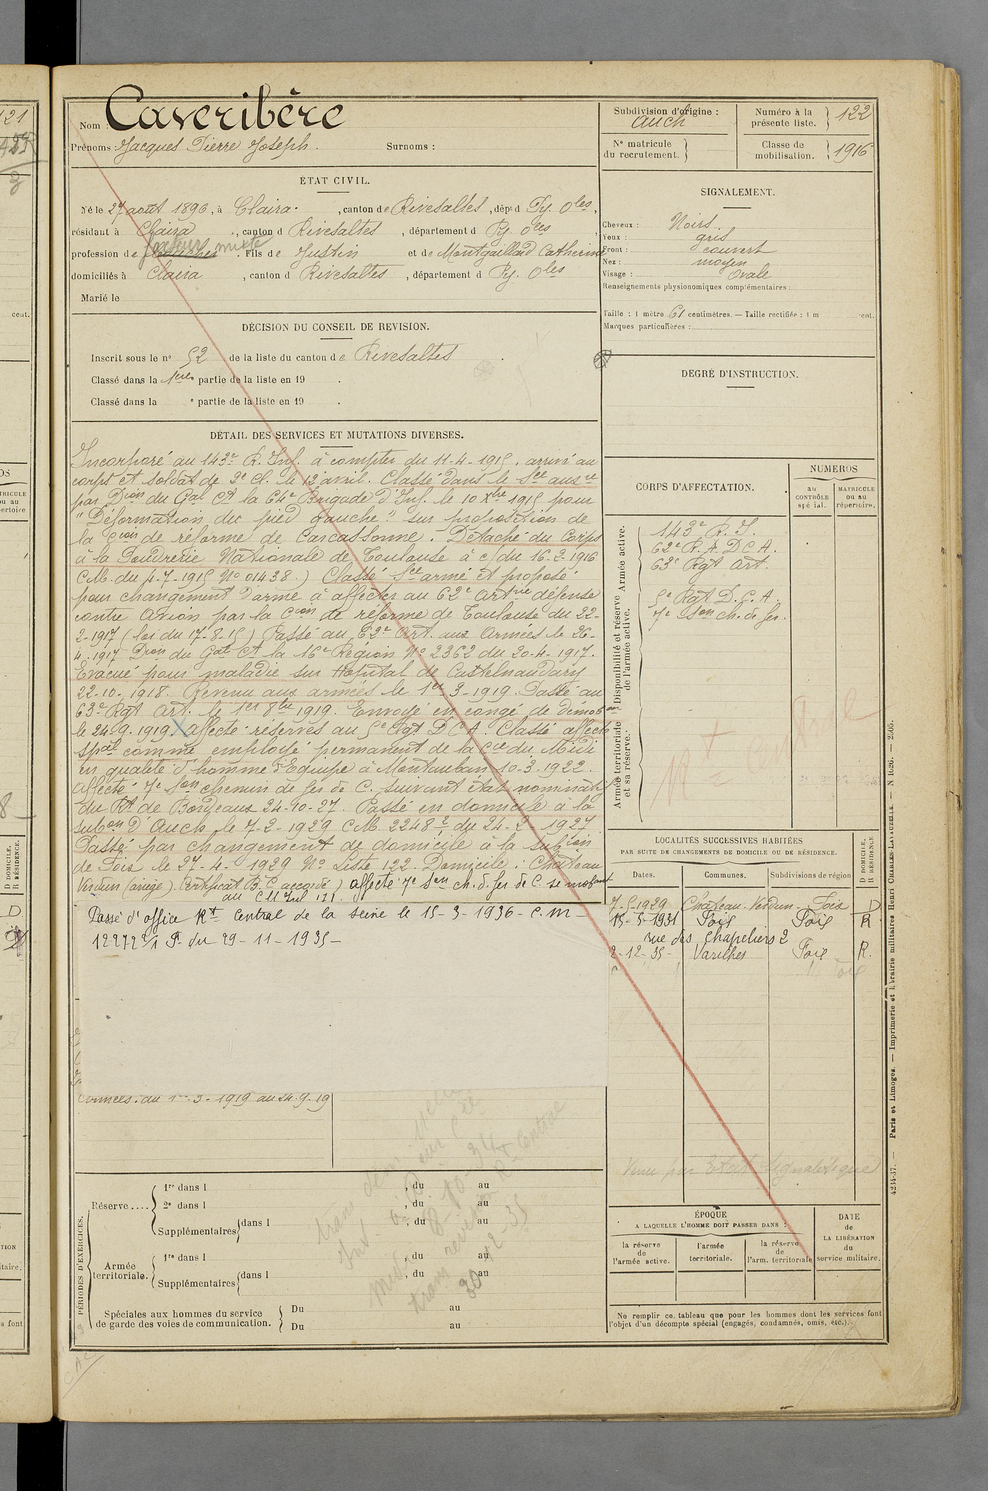 Nom : Caveribère
Prénoms : Jacques Pierre Joseph. Surnoms :
ÉTAT CIVIL.
Né le 27 août 1896, à Claira, canton de Rivesaltes, dépt d Py. Oles,
résidant à Claira, canton d Rivesaltes, département d Py Oles
profession de facteur mixte. Fils de Justin et de Montgaillard Catherine
domiciliés à Claira, canton d Rivesaltes, département d Py. Oles
Marié le
DÉCISION DU CONSEIL DE REVISION.
Inscrit sous le n° 52 de la liste du canton de Rivesaltes.
Classé dans la 1ère partie de la liste en 19 .
Classé dans la e partie de la liste en 19 .
DÉTAIL DES SERVICES ET MUTATIONS DIVERSES.
Incorporé au 143e R. Inf. à compter du 11-4-1915, arrivé au
corps et soldat de 2e cl. le 12 avril. Classé dans le Sce auxre
par Dion du Gal Ct la 64e Brigade d'Inf. le 10 Xbre 1915 pour
"Déformation du pied gauche" sur proposition de
la Cion de réforme de Carcassonne. Détaché du Corps
à la Poudrerie Nationale de Toulouse à c/ du 16-2-1916
C.M. du 4-7-1915 N° 01438.) Classé Sce armé et proposé
pour changement d'arme à affecter au 62e Artrie défense
contre Avion par la Cion de réforme de Toulouse du 22-
2-1917 (loi du 17-8-15) Passé au 62e Art. aux Armées le 26-
4-1917 Dion du Gal Ct la 16e Région N° 2362 du 20-4-1917.
Evacué pour maladie sur Hopital de Castelnaudary
22-10-1918. Revenu aux armées le 1er 3-1919. Passé au
63e Rgt Art. le 1er 8bre 1919. Envoyé en congé de démobon
le 24-9-1919 X affecté réserves au 5e Rgt D C A. Classé affecté
spal comme employé permanent de la Cie du Midi
en qualité d'homme d'Equipe à Montauban 10-3-1922.
affecté 7e Son chemin de fer de C. suivant état nominatif
du Rt de Bordeaux 24-10-27. Passé en domicile à la
subon d'Auch le 7-2-1929 C.M. 2248 2 du 24-2-1927
Passé par changement de domicile à la subion
de Foix le 27-4-1929 N° liste 122. Domicile : Château
Verdun (ariège). Certificat B. C accordé) affecté 7e Son ch. d. fer de C. se mobant
au
Passé d'office Rt Central de la Seine le 15-3-1936- C.M-
12272 2/1 P. du 29-11-1935-
armées : du 1er-3-1919 au 24.9.19
PÉRIODES D'EXERCICES.
Réserve....
1re dans l , du au
2e dans l , du au
Supplémentaires dans l , du au
Armée territoriale.
1re dans l , du au
Supplémentaires dans l , du au
Spéciales aux hommes du service de garde des voies de communication.
Du au
Du au
Subdivision d'origine : Auch
Numéro à la présente liste. 122
N° matricule du recrutement.
Classe de mobilisation. 1916
SIGNALEMENT.
Cheveux : Noirs.
Yeux : gris
Front : couvert
Nez : moyen
Visage : Ovale
Renseignements physionomiques complémentaires :
Taille : 1 mètre 61 centimètres. — Taille rectifiée : 1 m cent.
Marques particulières :
DEGRÉ D'INSTRUCTION.
CORPS D'AFFECTATION.
NUMÉROS
AU CONTRÔLE spécial.
MATRICULE ou au répertoire.
Armée active.
143e R. I.
62e R. A. D C A.
63e Rgt art.
Disponibilité et réserve de l'armée active.
5e Rgt D. C. A.
7e Son ch. de fer.
Armée territoriale et sa réserve.
Rt central
LOCALITÉS SUCCESSIVES HABITÉES
PAR SUITE DE CHANGEMENTS DE DOMICILE OU DE RÉSIDENCE.
Dates. Communes. Subdivisions de région
D DOMICILE.
R RÉSIDENCE.
7-5-1929 Château-Verdun- Foix D
15-5-1931 Foix Foix R
rue des Chapeliers 2
2-12-35- Varilhes Foix R.
ÉPOQUE
A LAQUELLE L'HOMME DOIT PASSER DANS :
la réserve de l'armée active.
l'armée territoriale.
la réserve de l'arm. territoriale
DATE de LA LIBÉRATION du service militaire.
Ne remplir ce tableau que pour les hommes dont les services font
l'objet d'un décompte spécial (engagés, condamnés, omis, etc.).
4234-37. — Paris et Limoges. — Imprimerie et librairie militaires Henri CHARLES-LAVAUZELLE.